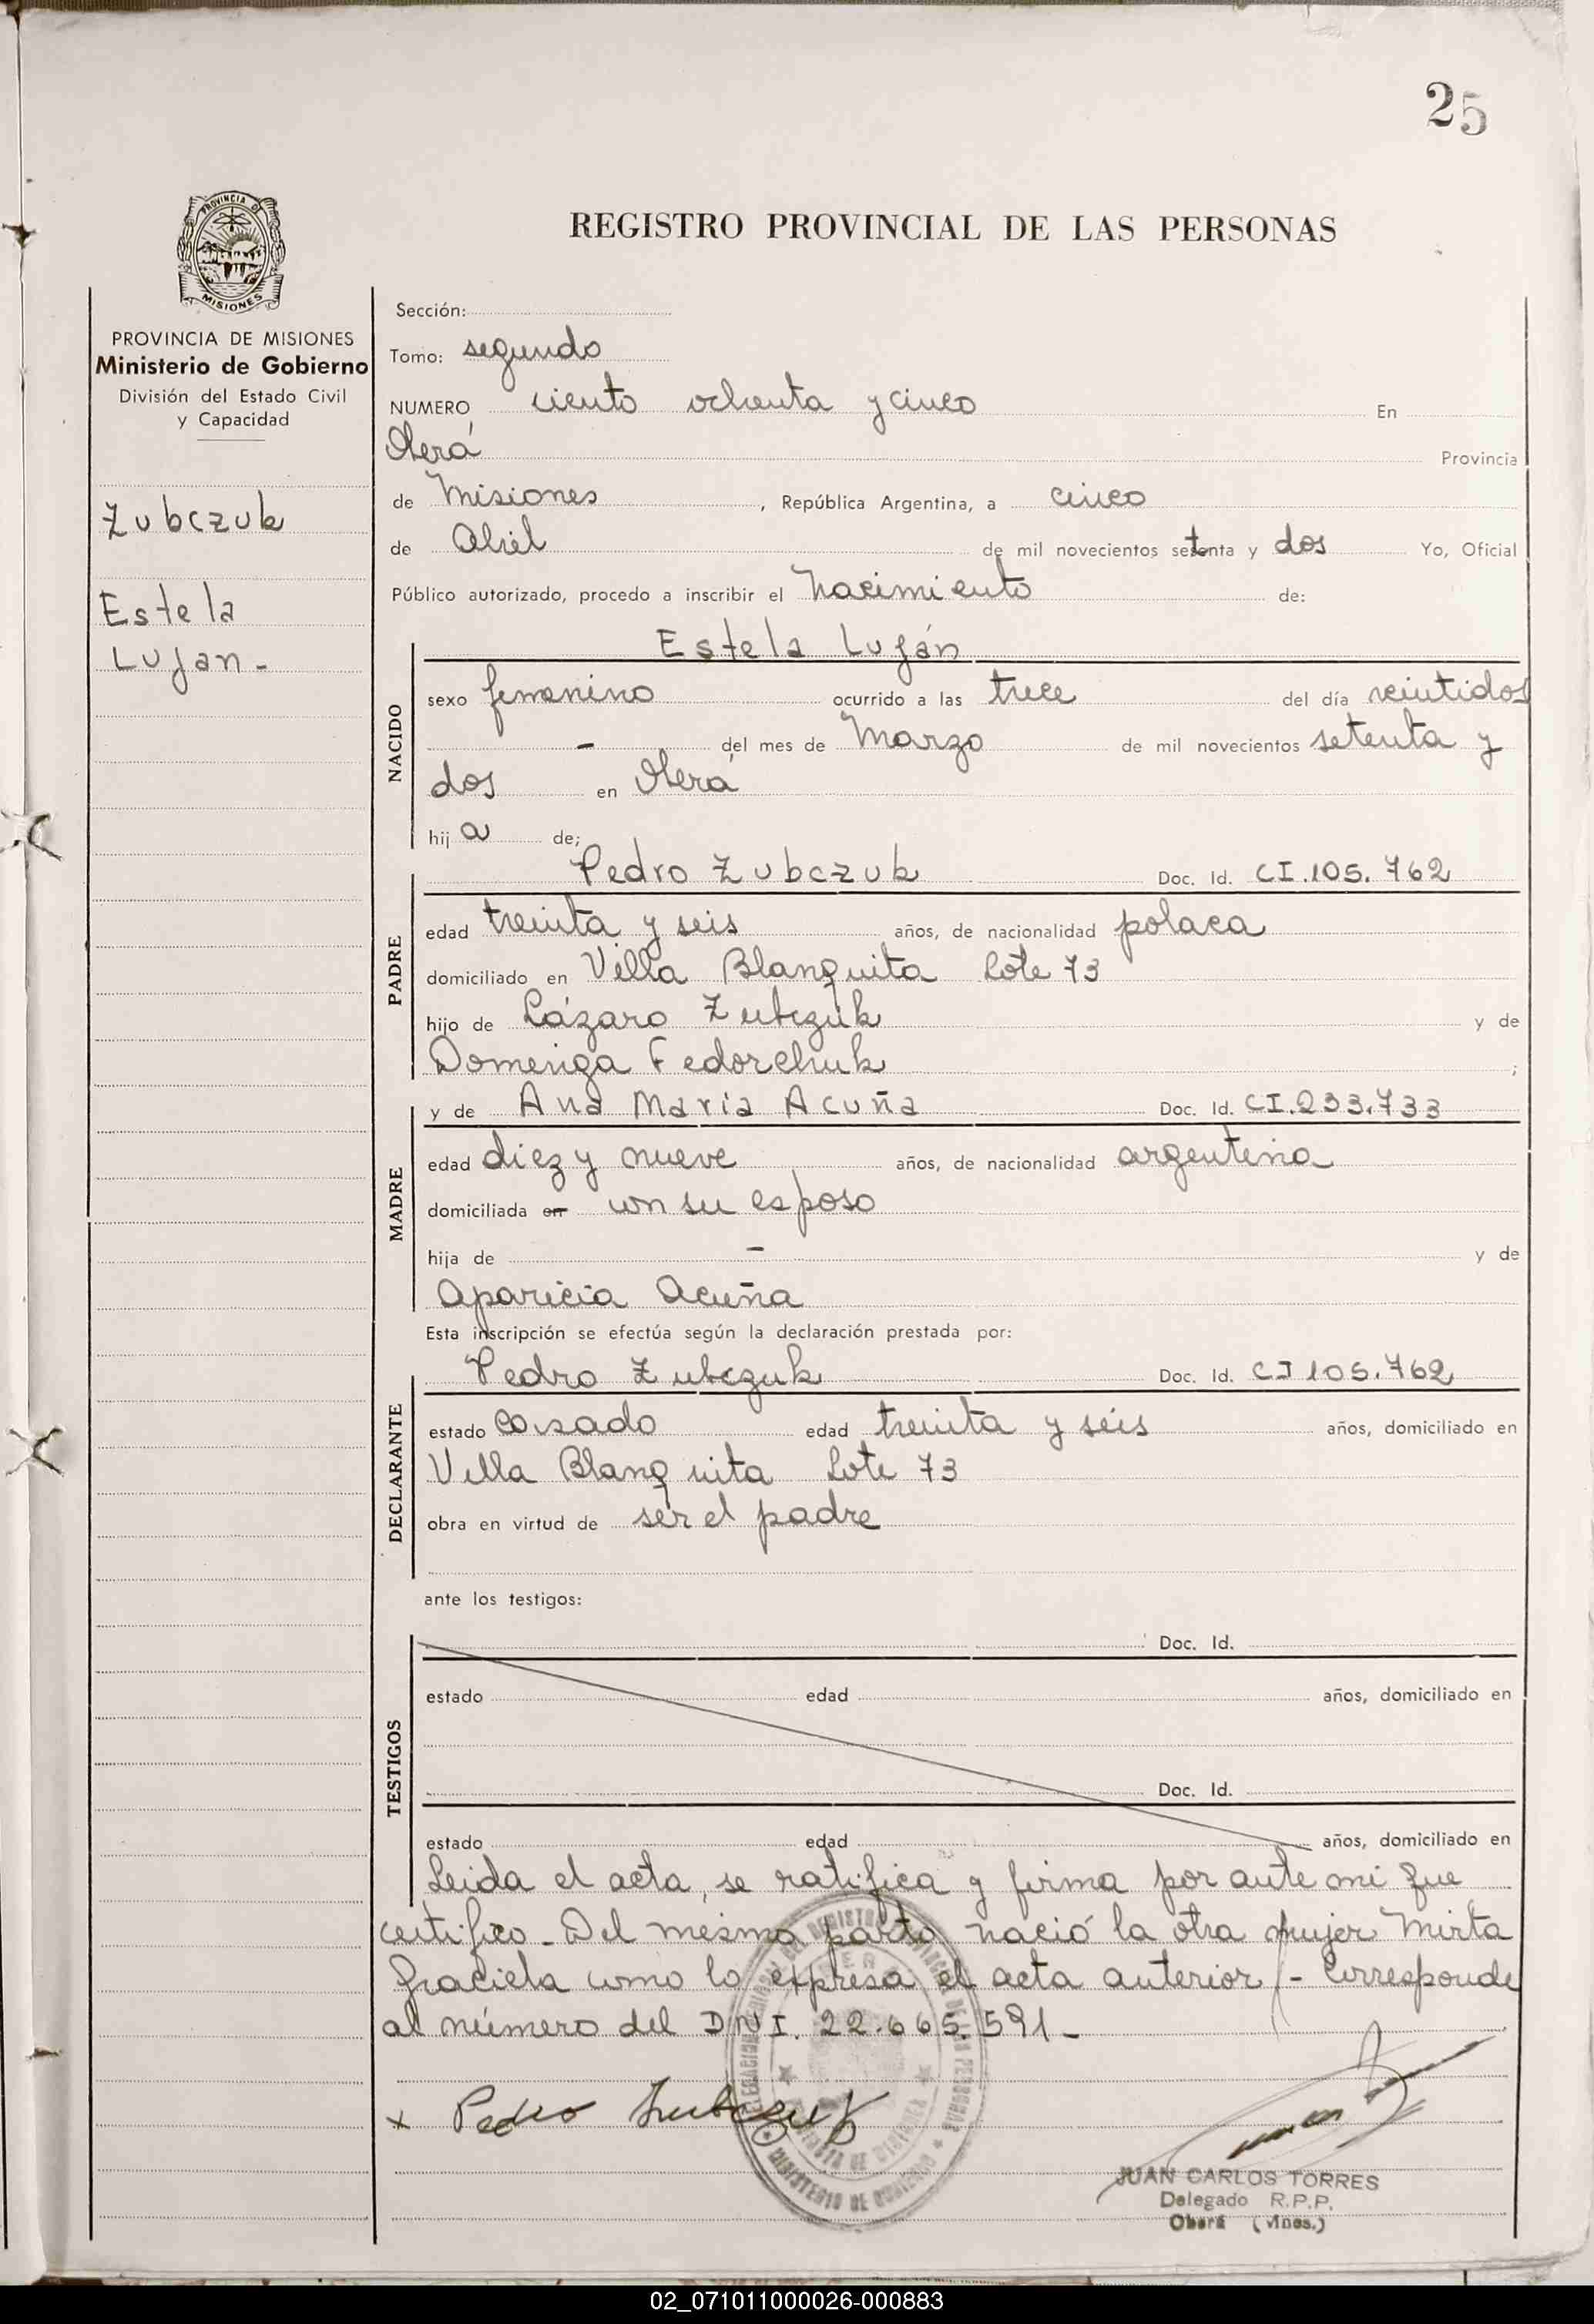 25
PROVINCIA DE MISIONES
REGISTRO PROVINCIAL DE LAS PERSONAS
PROVINCIA DE MISIONES
Ministerio de Gobierno
División del Estado Civil
y Capacidad
Zubczuk
Estela
Lujan-
Sección:
Tomo: segundo
NUMERO ciento ochenta y cinco En
Oberá Provincia
de Misiones, República Argentina, a cinco
de Abril de mil novecientos setenta y dos Yo, Oficial
Público autorizado, procedo a inscribir el Nacimiento de:
NACIDO
Estela Luján
sexo femenino ocurrido a las trece del día veintidos
- del mes de Marzo de mil novecientos setenta y
dos en Oberá
hij a de;
PADRE
Pedro Zubczuk Doc. Id. CI.105.762
edad treinta y seis años, de nacionalidad polaca
domiciliado en Villa Blanquita Lote 73
hijo de Lázaro Zubczuk y de
Domenga Fedorchuk ;
MADRE
y de Ana María Acuña Doc. Id. CI.233.733
edad diez y nueve años, de nacionalidad argentina
domiciliada en con su esposo
hija de - y de
Aparicia Acuña
Esta inscripción se efectúa según la declaración prestada por:
DECLARANTE
Pedro Zubczuk Doc. Id. CI 105.762
estado casado edad treinta y seis años, domiciliado en
Villa Blanquita Lote 73
obra en virtud de ser el padre
ante los testigos:
TESTIGOS
Doc. Id.
estado edad años, domiciliado en
Doc. Id.
estado edad años, domiciliado en
Leida el acta, se ratifica y firma por ante mi que
certifico - Del mismo parto nació la otra mujer Mirta
Graciela como lo expresa el acta anterior - Corresponde
al número del DNI. 22.665.591-
x Pedro Zubczuk
JUAN CARLOS TORRES
Delegado R.P.P.
Oberá (Mnes.)
02_071011000026-000883